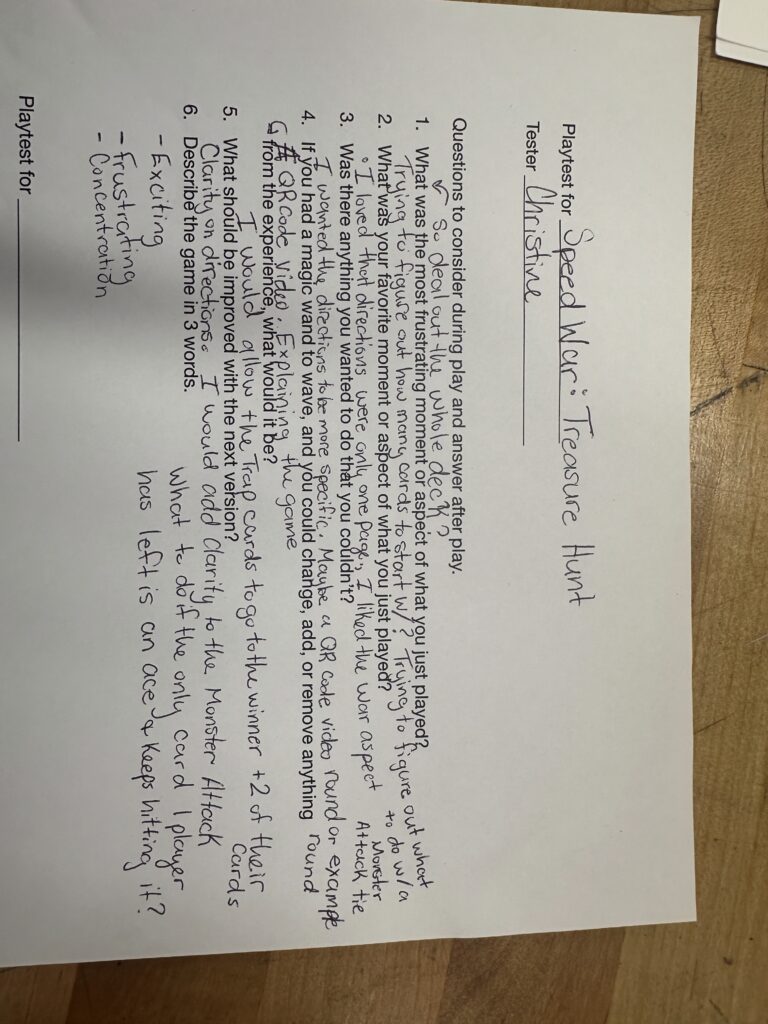 Playtest for Speed War: Treasure Hunt
Tester Christine
Questions to consider during play and answer after play.
So deal out the whole deck?
1. What was the most frustrating moment or aspect of what you just played?
Trying to figure out how many cards to start w/? Trying to figure out what to do w/a Monster Attack tie
2. What was your favorite moment or aspect of what you just played?
• I loved that directions were only one page, I liked the war aspect
3. Was there anything you wanted to do that you couldn't?
I wanted the directions to be more specific. Maybe a QR code video round or example round
4. If you had a magic wand to wave, and you could change, add, or remove anything
from the experience, what would it be?
QR code video Explaining the game
I would allow the Trap cards to go to the winner +2 of their cards
5. What should be improved with the next version?
Clarity on directions. I would add clarity to the Monster Attack
6. Describe the game in 3 words.
What to do if the only card 1 player
has left is an ace & keeps hitting it?
- Exciting
- frustrating
- Concentration
Playtest for